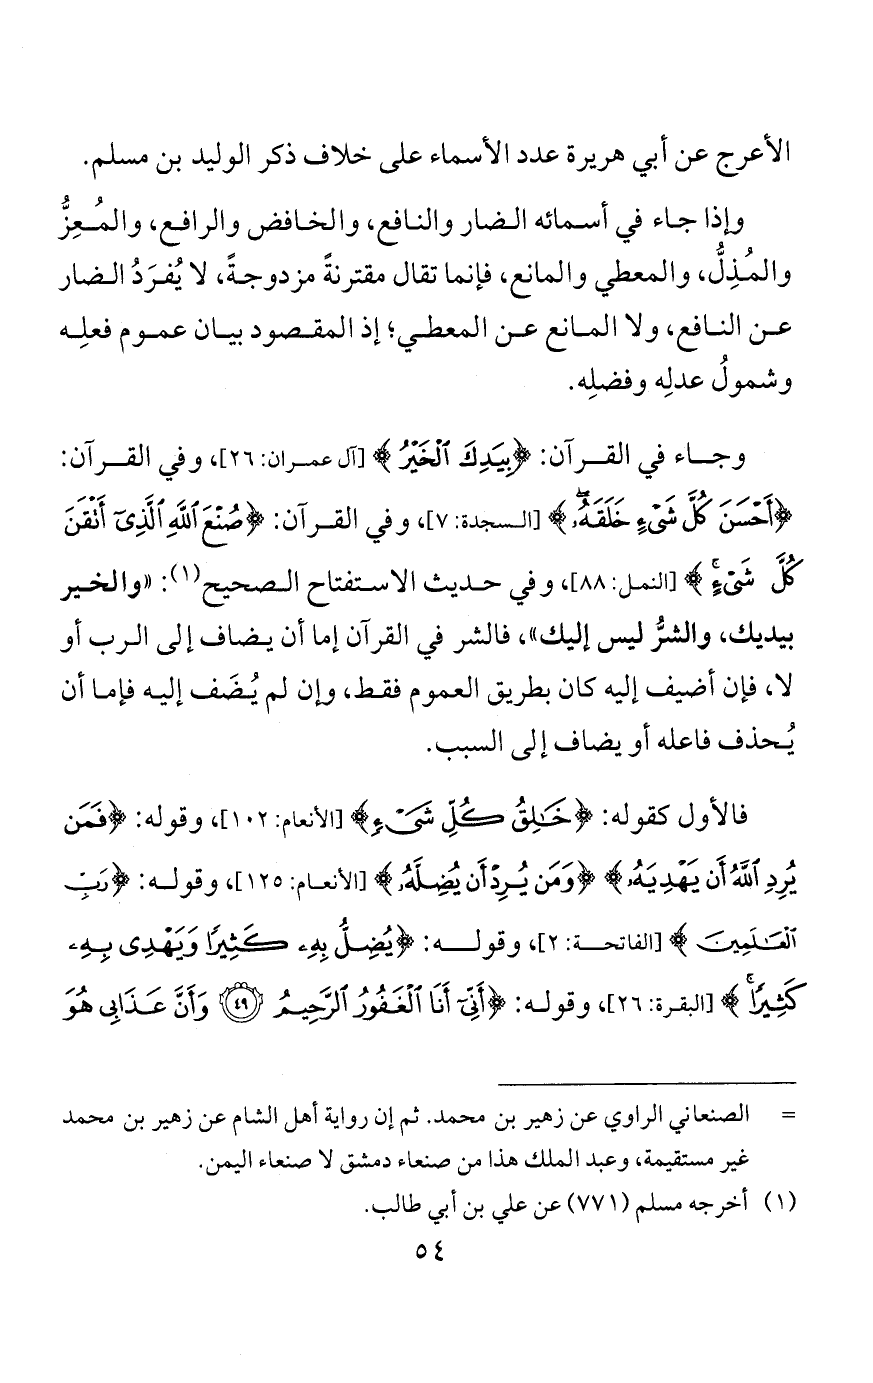 الأعرج عن أبي هريرة عدد الأسماء على خلاف ذكر الوليد بن مسلم.
وإذا جاء في أسمائه الضار والنافع، والخافض والرافع، والمُعِزُّ
والمُذِلُّ، والمعطي والمانع، فإنما تقال مقترنةً مزدوجةً، لا يُفرَدُ الضار
عن النافع، ولا المانع عن المعطي؛ إذ المقصود بيان عموم فعلِه
وشمولُ عدلِه وفضلِه.
وجاء في القرآن: ﴿بِيَدِكَ ٱلْخَيْرُ﴾ [آل عمران: ٢٦]، وفي القرآن:
﴿أَحْسَنَ كُلَّ شَىْءٍ خَلَقَهُۥۖ﴾ [السجدة: ٧]، وفي القرآن: ﴿صُنْعَ ٱللَّهِ ٱلَّذِىٓ أَتْقَنَ
كُلَّ شَىْءٍۚ﴾ [النمل: ٨٨]، وفي حديث الاستفتاح الصحيح(١): «والخير
بيديك، والشرُّ ليس إليك»، فالشر في القرآن إما أن يضاف إلى الرب أو
لا، فإن أضيف إليه كان بطريق العموم فقط، وإن لم يُضَف إليه فإما أن
يُحذف فاعله أو يضاف إلى السبب.
فالأول كقوله: ﴿خَٰلِقُ كُلِّ شَىْءٍ﴾ [الأنعام: ١٠٢]، وقوله: ﴿فَمَن
يُرِدِ ٱللَّهُ أَن يَهْدِيَهُۥ﴾ ﴿وَمَن يُرِدْ أَن يُضِلَّهُۥ﴾ [الأنعام: ١٢٥]، وقوله: ﴿رَبِّ
ٱلْعَٰلَمِينَ﴾ [الفاتحة: ٢]، وقوله: ﴿يُضِلُّ بِهِۦ كَثِيرًا وَيَهْدِى بِهِۦ
كَثِيرًاۚ﴾ [البقرة: ٢٦]، وقوله: ﴿أَنِّىٓ أَنَا ٱلْغَفُورُ ٱلرَّحِيمُ ٤٩ وَأَنَّ عَذَابِى هُوَ
= الصنعاني الراوي عن زهير بن محمد. ثم إن رواية أهل الشام عن زهير بن محمد
غير مستقيمة، وعبد الملك هذا من صنعاء دمشق لا صنعاء اليمن.
(١) أخرجه مسلم (٧٧١) عن علي بن أبي طالب.
٥٤